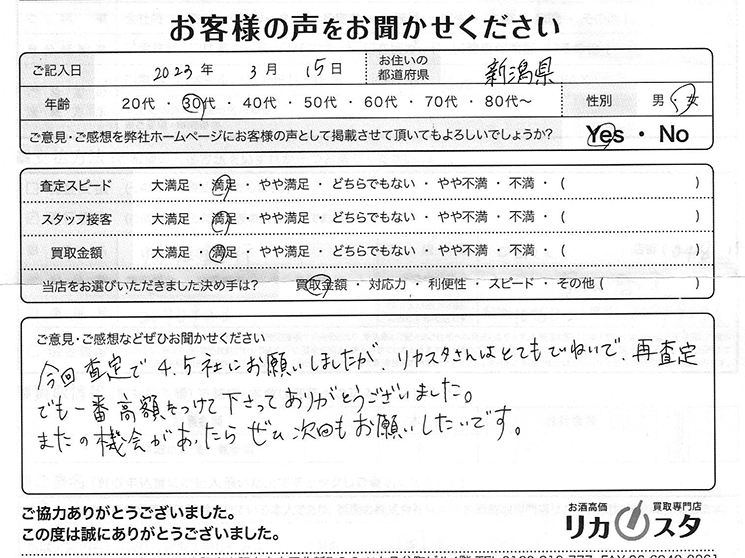 お客様の声をお聞かせください
ご記入日 2023年 3月 15日 お住いの都道府県 新潟県
年齢 20代 ・ 30代 ・ 40代 ・ 50代 ・ 60代 ・ 70代 ・ 80代〜 性別 男 ・ 女
ご意見・ご感想を弊社ホームページにお客様の声として掲載させて頂いてもよろしいでしょうか? Yes ・ No
査定スピード 大満足 ・ 満足 ・ やや満足 ・ どちらでもない ・ やや不満 ・ 不満 ・ ( )
スタッフ接客 大満足 ・ 満足 ・ やや満足 ・ どちらでもない ・ やや不満 ・ 不満 ・ ( )
買取金額 大満足 ・ 満足 ・ やや満足 ・ どちらでもない ・ やや不満 ・ 不満 ・ ( )
当店をお選びいただきました決め手は? 買取金額 ・ 対応力 ・ 利便性 ・ スピード ・ その他 ( )
ご意見・ご感想などぜひお聞かせください
今回査定で4.5社にお願いしましたが、リカスタさんはとてもていねいで、再査定
でも一番高額をつけて下さってありがとうございました。
またの機会があったらぜひ次回もお願いしたいです。
ご協力ありがとうございました。
この度は誠にありがとうございました。
お酒高価 買取専門店
リカスタ